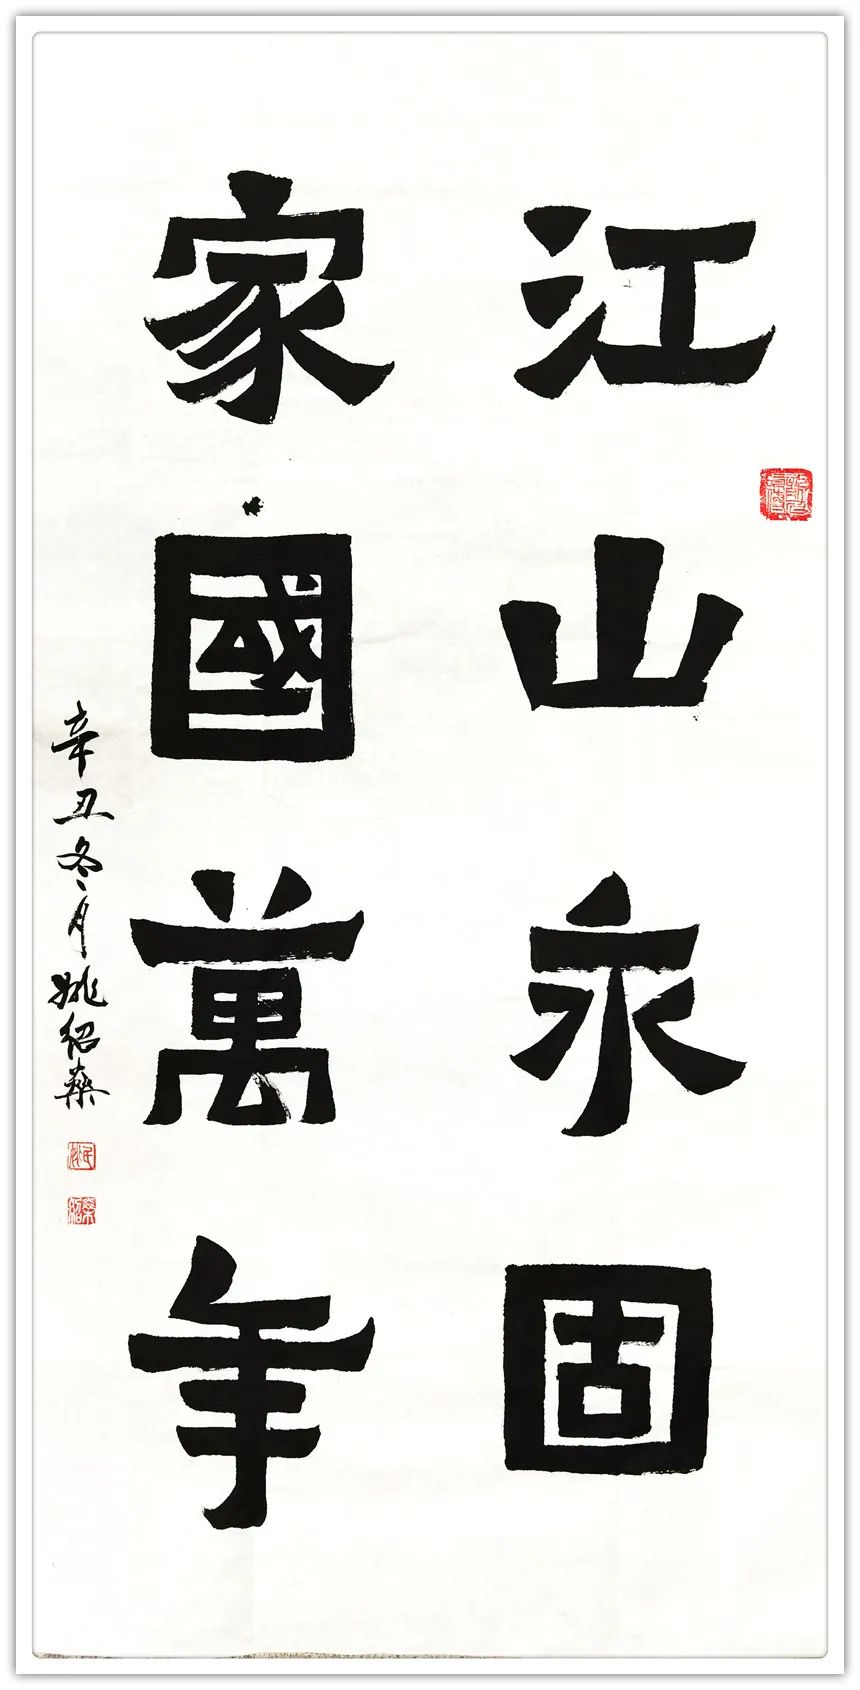 江山永固
家國萬年
辛丑冬月姚紹燊